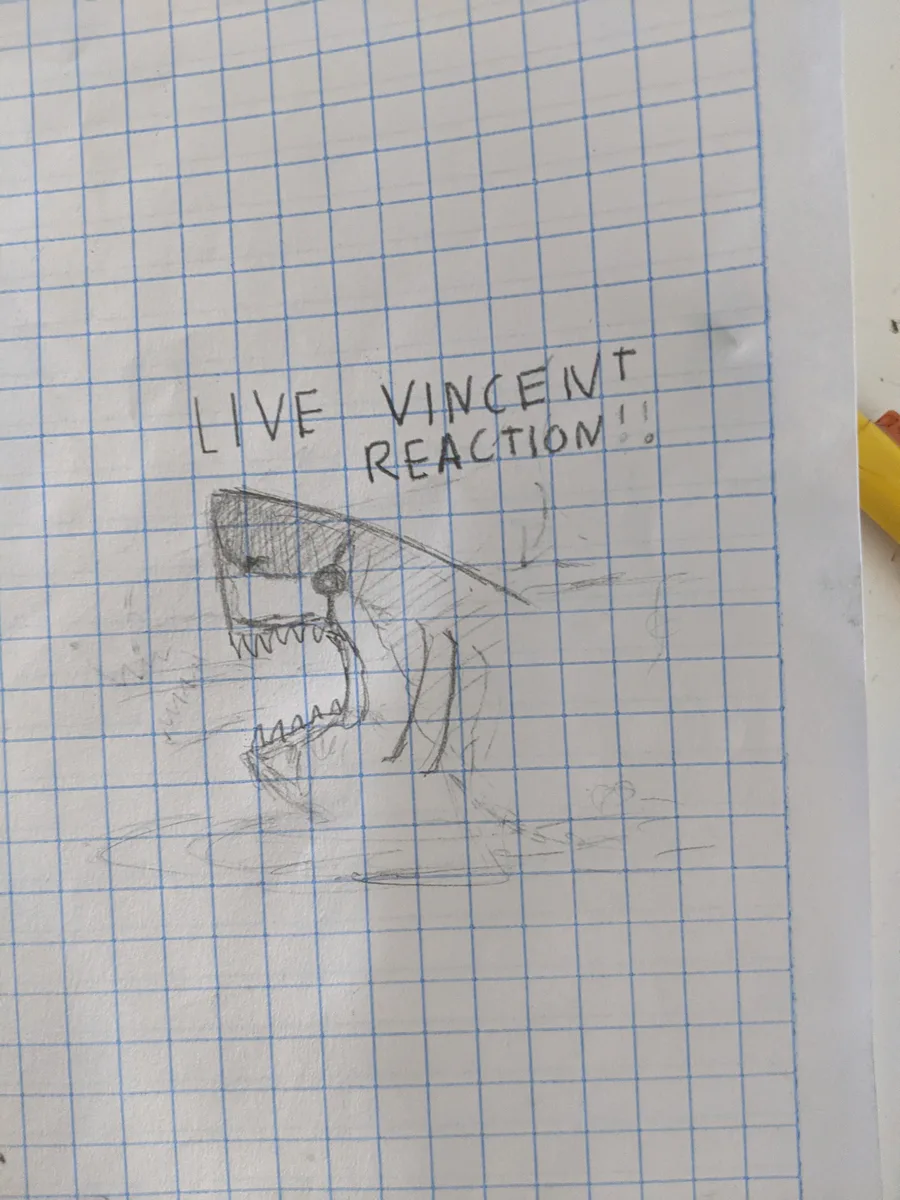 LIVE VINCENT
REACTION!!